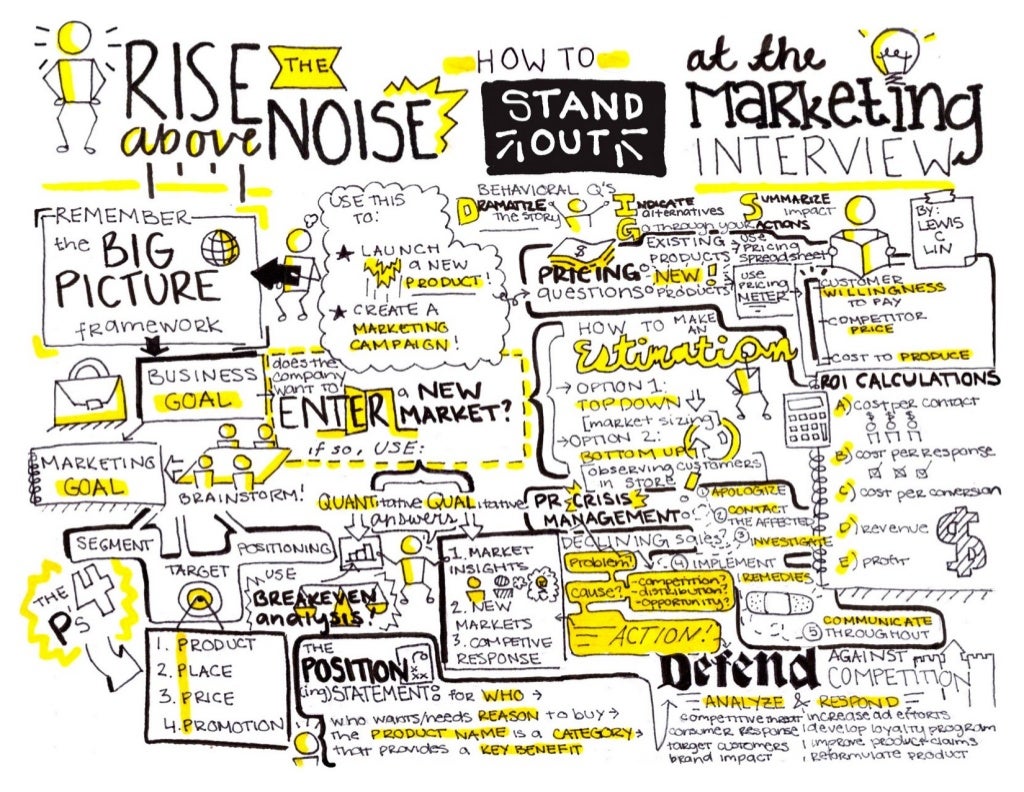 RISE
above
THE
NOISE
HOW TO
STAND
OUT
at the
Marketing
INTERVIEW
BY:
LEWIS
C
LIN
REMEMBER
the BIG
PICTURE
framework
USE THIS
TO:
★ LAUNCH
a NEW
PRODUCT!
★ CREATE A
MARKETING
CAMPAIGN!
BEHAVIORAL Q'S
DRAMATIZE
the STORY
INDICATE
alternatives
GO through your ACTIONS
SUMMARIZE
impact
$
PRICING
questions
EXISTING
PRODUCTS
→ USE
PRICING
SPREADSHEET
NEW!
PRODUCTS
USE
PRICING
METER
CUSTOMER
WILLINGNESS
TO PAY
-COMPETITOR
PRICE
-COST TO PRODUCE
BUSINESS
GOAL
does the
company
want to
ENTER
a NEW
MARKET?
if so, USE:
QUANTitative QUALitative
answers
MARKETING
GOAL
BRAINSTORM!
SEGMENT
TARGET
POSITIONING
THE
4
Ps
1. PRODUCT
2. PLACE
3. PRICE
4. PROMOTION
USE
BREAKEVEN
analysis!
1. MARKET
INSIGHTS
2. NEW
MARKETS
3. COMPETIVE
RESPONSE
HOW TO MAKE
AN
Estimation
→ OPTION 1:
TOP DOWN
[market sizing]
→ OPTION 2:
BOTTOM UP
[observing customers
in store]
ROI CALCULATIONS
A) cost per contact
$ $ $
B) cost per response
C) cost per conversion
D) revenue
E) profit
$
PR CRISIS
MANAGEMENT
① APOLOGIZE
② CONTACT
THE AFFECTED
③ INVESTIGATE
④ IMPLEMENT
REMEDIES
⑤ COMMUNICATE
THROUGHOUT
DECLINING sales?
Problem?
cause?
-competition?
-distribution?
-opportunity?
ACTION!
THE
POSITION
(ing) STATEMENT: FOR WHO →
WHO wants/needs REASON to buy →
the PRODUCT NAME is a CATEGORY →
that provides a KEY BENEFIT
Defend
AGAINST
COMPETITION
ANALYZE & RESPOND
competitive threat
consumer response
target customers
brand impact
increase ad efforts
develop loyalty program
improve product claims
reformulate product